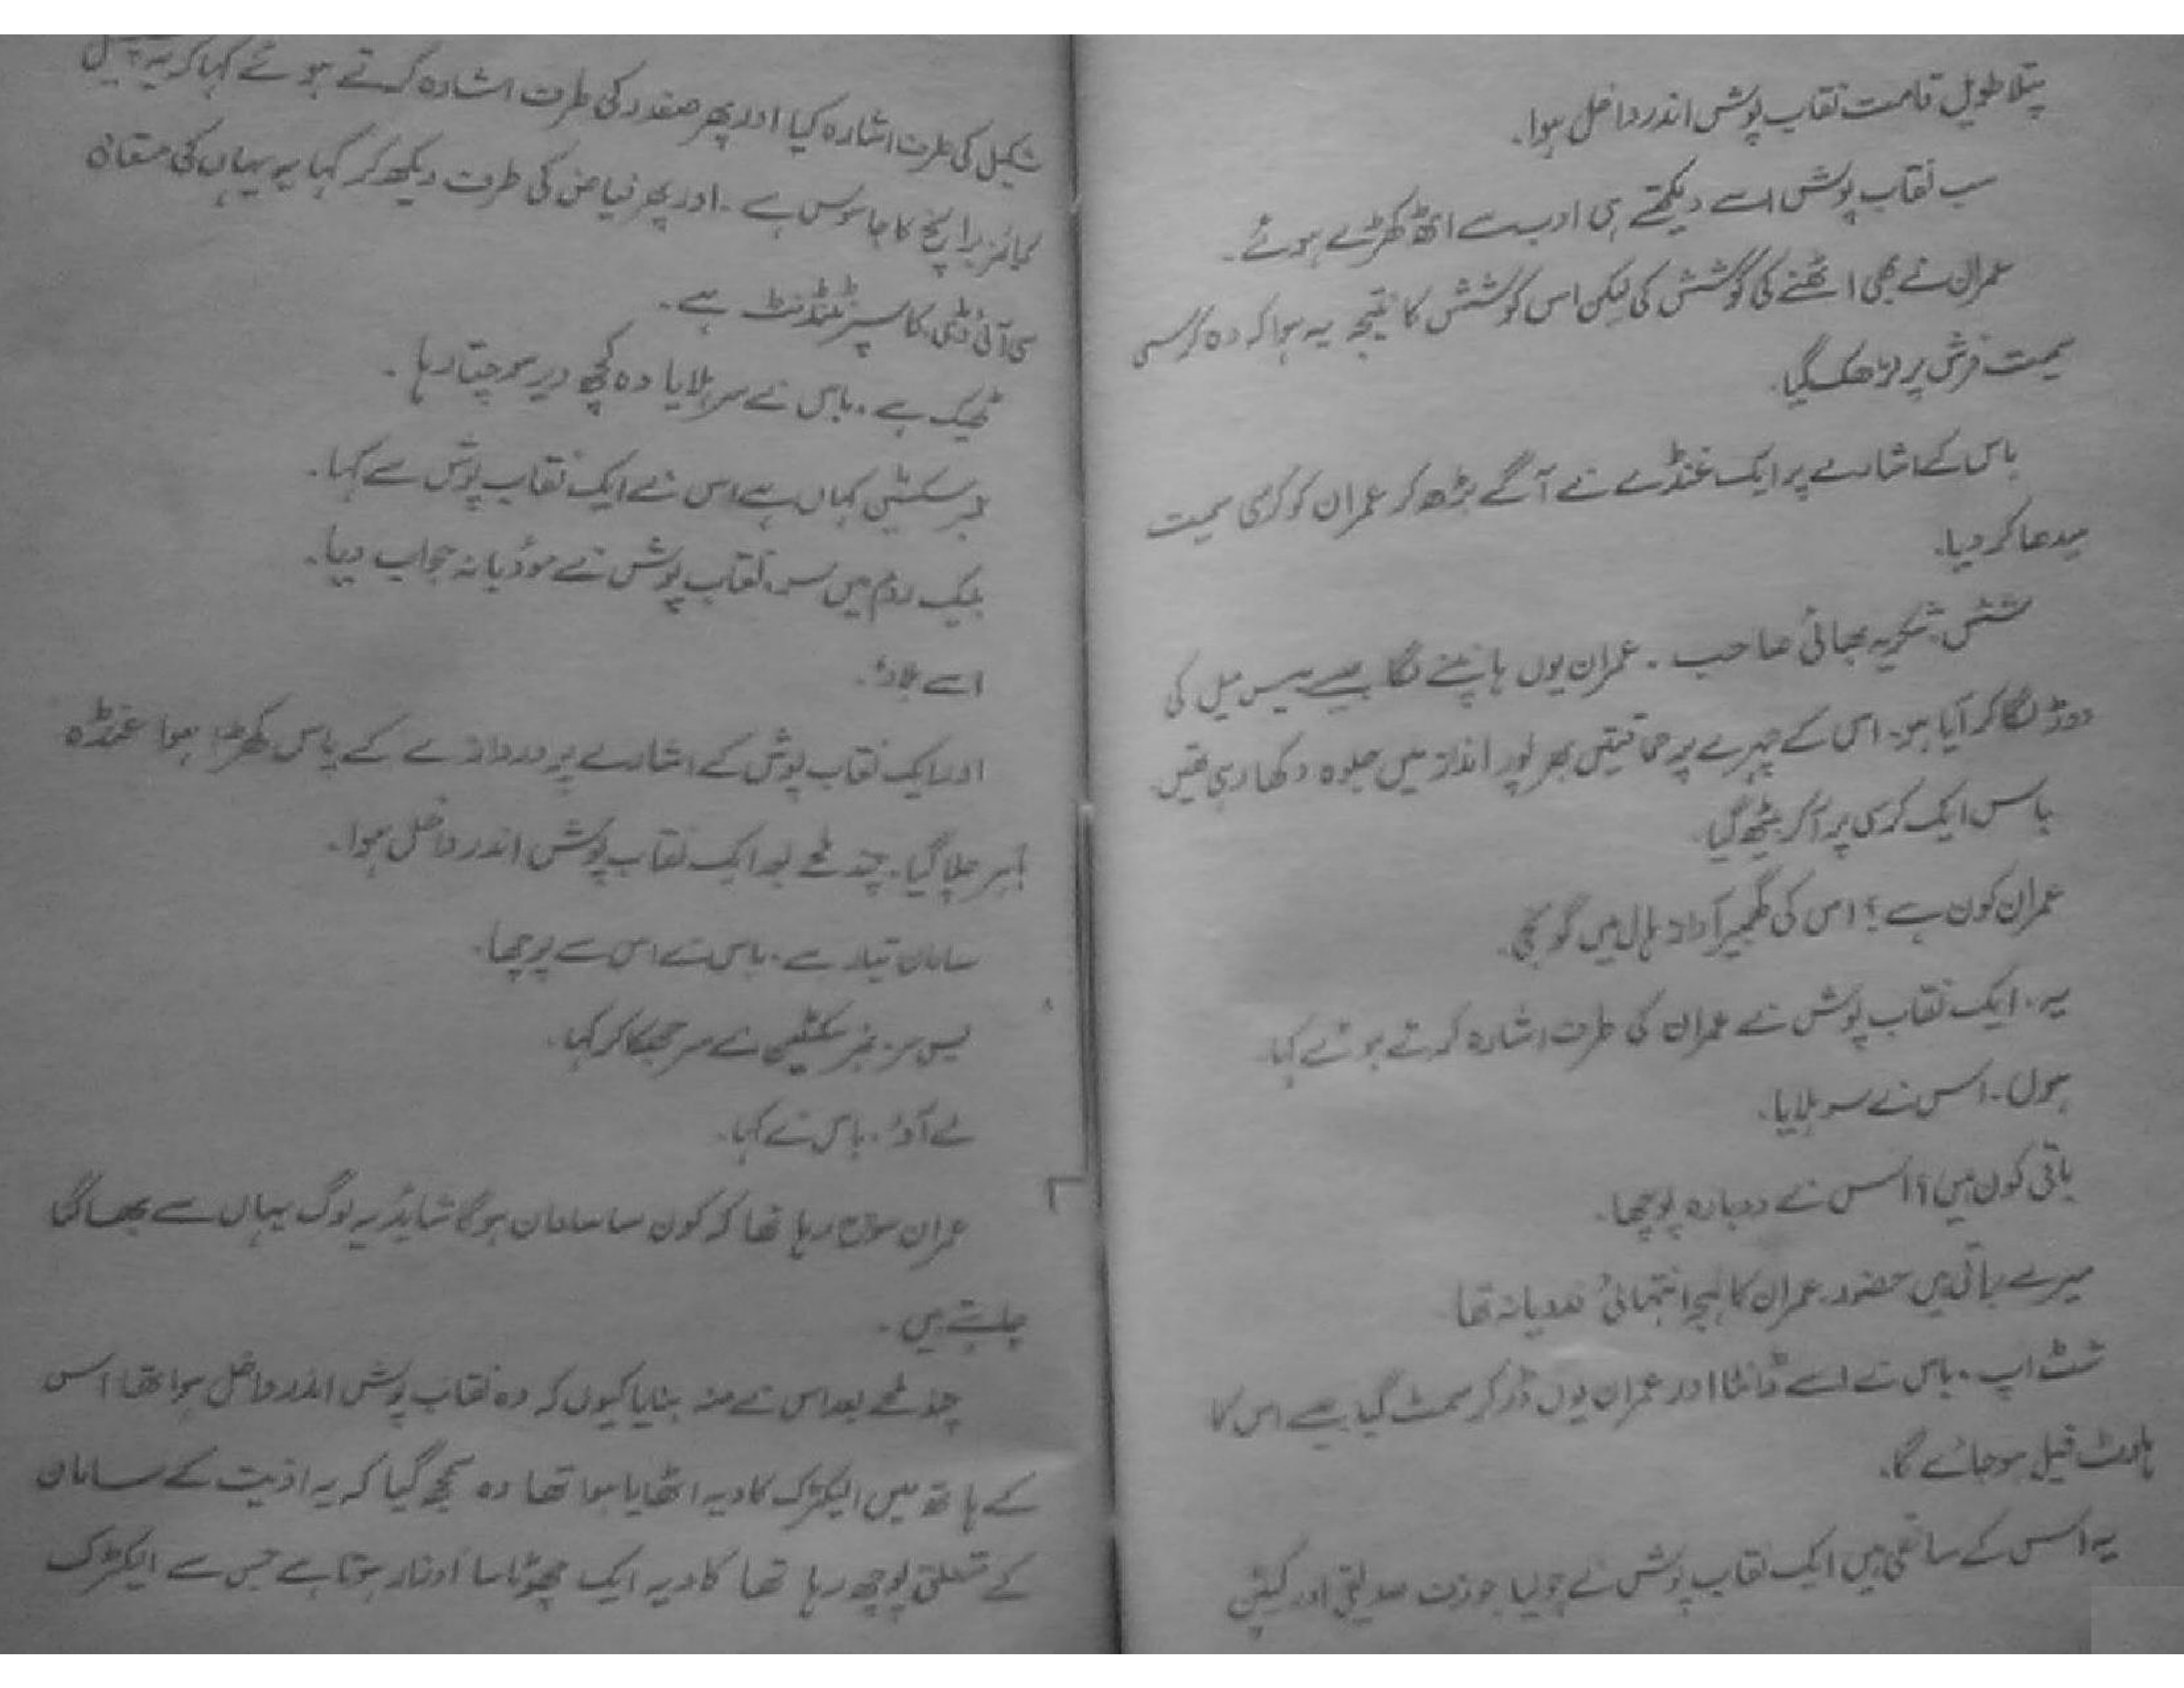 پتلا طویل قامت نقاب پوش اندر داخل ہوا۔
سب نقاب پوش اسے دیکھتے ہی ادب سے اٹھ کھڑے ہوئے۔
عمران نے بھی اٹھنے کی کوشش کی لیکن اس کوشش کا نتیجہ یہ ہوا کہ وہ کرسی
سمیت فرش پر لڑھک گیا۔
باس کے اشارے پر ایک غنڈے نے آگے بڑھ کر عمران کو کرسی سمیت
سیدھا کر دیا۔
شش شکریہ بھائی صاحب ۔ عمران یوں ہانپنے لگا جیسے بیس میل کی
دوڑ لگا کر آیا ہو۔ اس کے چہرے پر حماقتیں بھر پور انداز میں جلوہ دکھا رہی تھیں
باس ایک کرسی پر آ کر بیٹھ گیا۔
عمران کون ہے ؟ اس کی گھمبیر آواز ہال میں گونجی۔
یہ۔ ایک نقاب پوش نے عمران کی طرف اشارہ کرتے ہوئے کہا۔
ہوں۔ اس نے سر ہلایا۔
باقی کون ہیں؟ اس نے دوبارہ پوچھا۔
میرے بھائی ہیں حضور۔ عمران کا لہجہ انتہائی فدویانہ تھا
شٹ اپ ۔ باس نے اسے ڈانٹا اور عمران یوں ڈر کر سمٹ گیا جیسے اس کا
ہارٹ فیل ہو جائے گا۔
یہ اس کے ساتھی ہیں ایک نقاب پوش نے جولیا جوزف صدیقی اور کیپٹن
شکیل کی طرف اشارہ کیا اور پھر صفدر کی طرف اشارہ کرتے ہوئے کہا کہ یہ
برانچ کا جاسوس ہے ۔ اور پھر فیاض کی طرف دیکھ کر کہا یہ یہاں کی مقامی
سی آئی ڈی کا سپرنٹنڈنٹ ہے ۔
ٹھیک ہے ۔ باس نے سر ہلایا وہ کچھ دیر سوچتا رہا ۔
نمبر سکسٹی کہاں ہے اس نے ایک نقاب پوش سے کہا۔
بلیک روم میں سر۔ نقاب پوش نے مودبانہ جواب دیا۔
اسے بلاؤ۔
اور ایک نقاب پوش کے اشارے پر دروازے کے پاس کھڑا ہوا غنڈہ
باہر چلا گیا۔ چند لمحے بعد ایک نقاب پوش اندر داخل ہوا۔
سامان تیار ہے ۔ باس نے اس سے پوچھا۔
یس سر۔ نمبر سکسٹی نے سر جھکا کر کہا۔
لے آؤ ۔ باس نے کہا۔
عمران سوچ رہا تھا کہ کون سا سامان ہوگا شاید یہ لوگ یہاں سے بھاگنا
چاہتے ہیں ۔
چند لمحے بعد اس نے منہ بنایا کیوں کہ وہ نقاب پوش اندر داخل ہوا تھا اس
کے ہاتھ میں الیکٹرک کاویہ اٹھایا ہوا تھا وہ سمجھ گیا کہ یہ اذیت کے سامان
کے متعلق پوچھ رہا تھا کاویہ ایک چھوٹا سا اوزار ہوتا ہے جس سے الیکٹرک